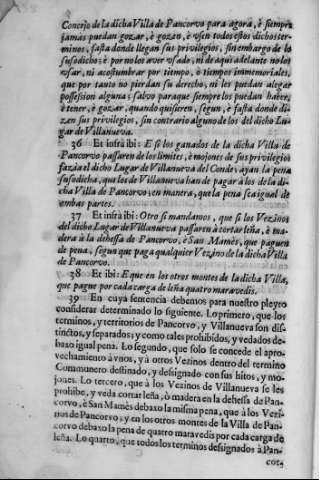 Concejo de la dicha Villa de Pancorvo para agora, è siempre
jamas puedan gozar, è gozen, è vsen todos estos dichos ter-
minos, fasta donde llegan sus privilegios, sin embargo de lo
susodicho; è por no los aver vsado, ni de aqui adelante no los
vsar, ni acostumbrar por tiempo, è tiempos immemoriales,
que por tanto no pierdan su derecho, ni les puedan alegar
possession alguna; salvo paraque siempre los puedan haver,
è tener, è gozar, quando quisieren, segun, è fasta donde di-
zen sus privilegios, sin contrario alguno de los del dicho Lu-
gar de Villanueva.
36 Et infrà ibi: E si los ganados de la dicha Villa de
Pancorvo passaren de los limites, è mojones de sus privilegios
fazia el dicho Lugar de Villanueva del Conde, ayan la pena
susodicha, que los de Villanueva han de pagar à los de la di-
cha Villa de Pancorvo; en manera, que la pena sea igual de
embas partes.
37 Et infrà ibi: Otro si mandamos, que si los Vezinos
del dicho Lugar de Villanueva passaren à cortar leña, è ma-
dera à la dehessa de Pancorvo, è San Mamès, que paguen
de pena, segun que paga qualquier Vezino de la dicha Villa
de Pancorvo.
38 Et ibi: E que en los otros montes de la dicha Villa,
que pague por cada carga de leña quatro maravedis.
39 En cuya sentencia debemos para nuestro pleyto
considerar determinado lo siguiente. Lo primero, que los
terminos, y territorios de Pancorvo, y Villanueva son dis-
tinctos, y separados; y como tales prohibidos, y vedados de-
baxo igual pena. Lo segundo, que solo se concede el apro-
vechamiento à vnos, y à otros Vezinos dentro del termino
Communero destinado, y designado con sus hitos, y mo-
jones. Lo tercero, que à los Vezinos de Villanueva se les
prohibe, y veda cortar leña, ò madera en la dehessa de Pan-
corvo, è San Mamès debaxo la misma pena, que à los Vezi-
nos de Pancorvo; y en los otros montes de la Villa de Pan-
corvo debaxo la pena de quatro maravedis por cada carga de
leña. Lo quarto, que todos los terminos designados à Pan-
cor-